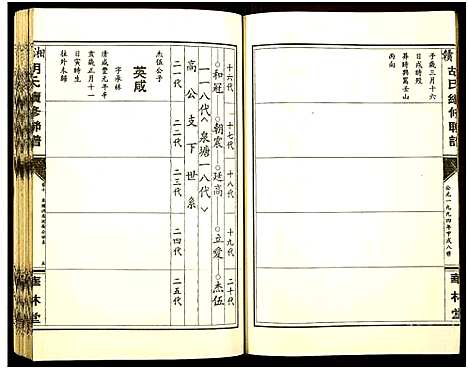 贛胡氏續修聯譜
公元一九九四年甲戌八修
華林堂
子歲三月十六
日戌時歿
葬時與嵩壬山
丙向
十六代 十七代 十八代 十九代 二十代
和冠 朝震 廷高 立愛 杰伍
一一八代〈泉塘一八代〉
高公支下世系
二一代 二二代 二三代 二四代 二五代
英咸
杰伍公子
字承林
清咸豐元年辛
亥歲正月十一
日寅時生
往外未歸
湘胡氏續修聯譜
華林堂